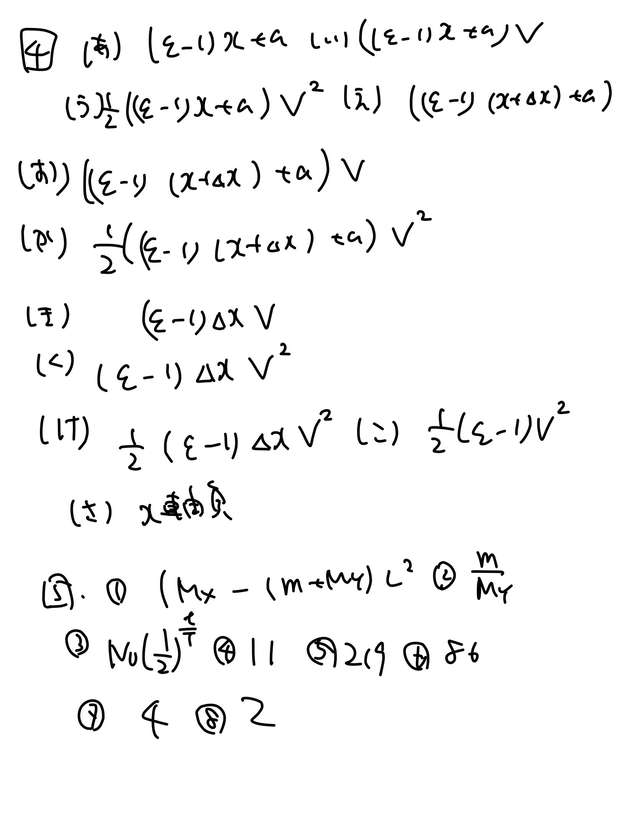 4 (あ) (ε-1)x+a (い) ((ε-1)x+a)V
(う) 1/2((ε-1)x+a)V² (え) ((ε-1)(x+Δx)+a)
(お) ((ε-1)(x+Δx)+a)V
(か) 1/2((ε-1)(x+Δx)+a)V²
(き) (ε-1)ΔxV
(く) (ε-1)ΔxV²
(け) 1/2(ε-1)ΔxV² (こ) 1/2(ε-1)V²
(さ) x 負
5. ① (Mx-(m+My)c² ② m/My
③ N₀(1/2)^(t/T) ④ 11 ⑤ 219 86
⑦ 4 ⑧ 2